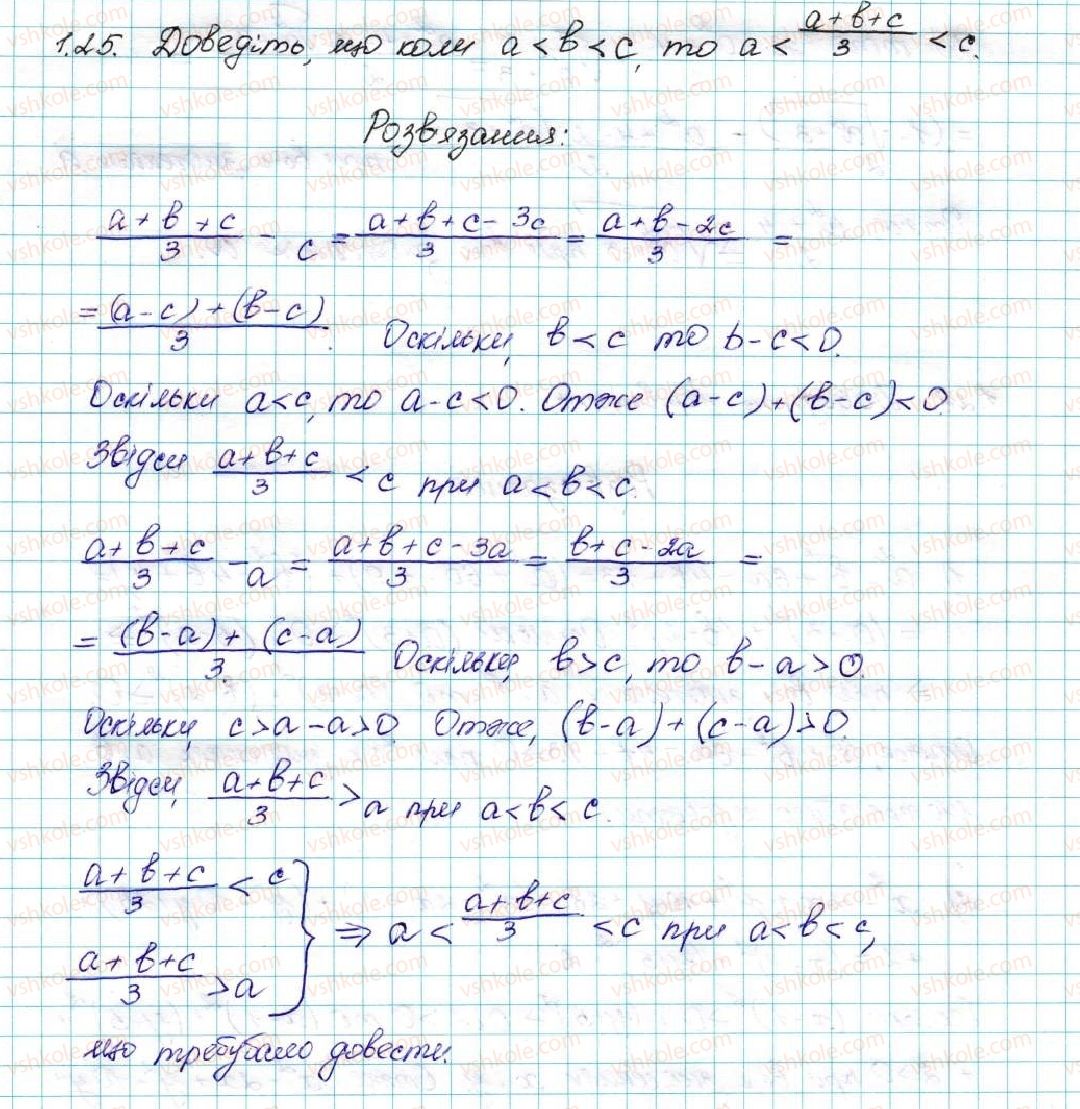 1.25. Доведіть, що коли a < b < c, то a < (a+b+c)/3 < c.
Розвязання:
(a+b+c)/3 - c = (a+b+c-3c)/3 = (a+b-2c)/3 =
= ((a-c)+(b-c))/3. Оскільки, b < c то b-c<0.
Оскільки a<c, то a-c<0. Отже (a-c)+(b-c)<0.
Звідси (a+b+c)/3 < c при a<b<c.
(a+b+c)/3 - a = (a+b+c-3a)/3 = (b+c-2a)/3 =
= ((b-a)+(c-a))/3. Оскільки, b>c, то b-a>0.
Оскільки, c>a-a>0. Отже, (b-a)+(c-a)>0.
Звідси, (a+b+c)/3 > a при a<b<c.
(a+b+c)/3 < c
(a+b+c)/3 > a } ⇒ a < (a+b+c)/3 < c при a<b<c,
що требувало довести.
vshkole.com